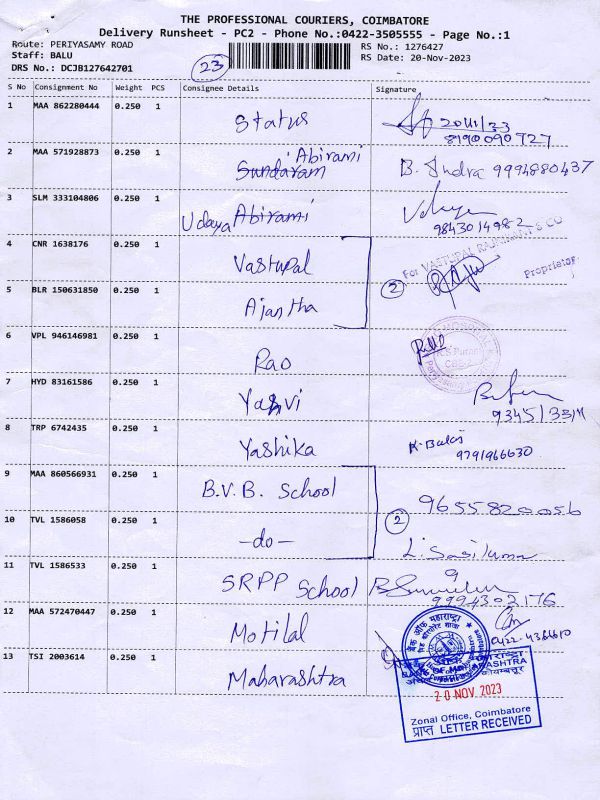 THE PROFESSIONAL COURIERS, COIMBATORE
Delivery Runsheet - PC2 - Phone No.:0422-3505555 - Page No.:1
Route: PERIYASAMY ROAD RS No.: 1276427
Staff: BALU RS Date: 20-Nov-2023
DRS No.: DCJB127642701
23
S No Consignment No Weight PCS Consignee Details Signature
1 MAA 862280444 0.250 1 Status
8190090727
2 MAA 571928873 0.250 1 Sundaram Abirami B. Indra 9994880437
3 SLM 333104806 0.250 1 Udaya Abirami
9843014982
4 CNR 1638176 0.250 1 Vastupal
For VASTUPAL & CO
Proprietor
2
5 BLR 150631850 0.250 1 Ajantha
6 VPL 946146981 0.250 1 Rao
7 HYD 83161586 0.250 1 Yashvi
8 TRP 6742435 0.250 1 Yashika K. Balaji
9791966630
9 MAA 860566931 0.250 1 B.V.B. School
9655820056
2
10 TVL 1586058 0.250 1 -do-
11 TVL 1586533 0.250 1 SRPP School
9994302176
12 MAA 572470447 0.250 1 Motilal
0422-4364610
13 TSI 2003614 0.250 1 Maharashtra
बैंक ऑफ महाराष्ट्र
20 NOV 2023
Zonal Office, Coimbatore
प्राप्त LETTER RECEIVED